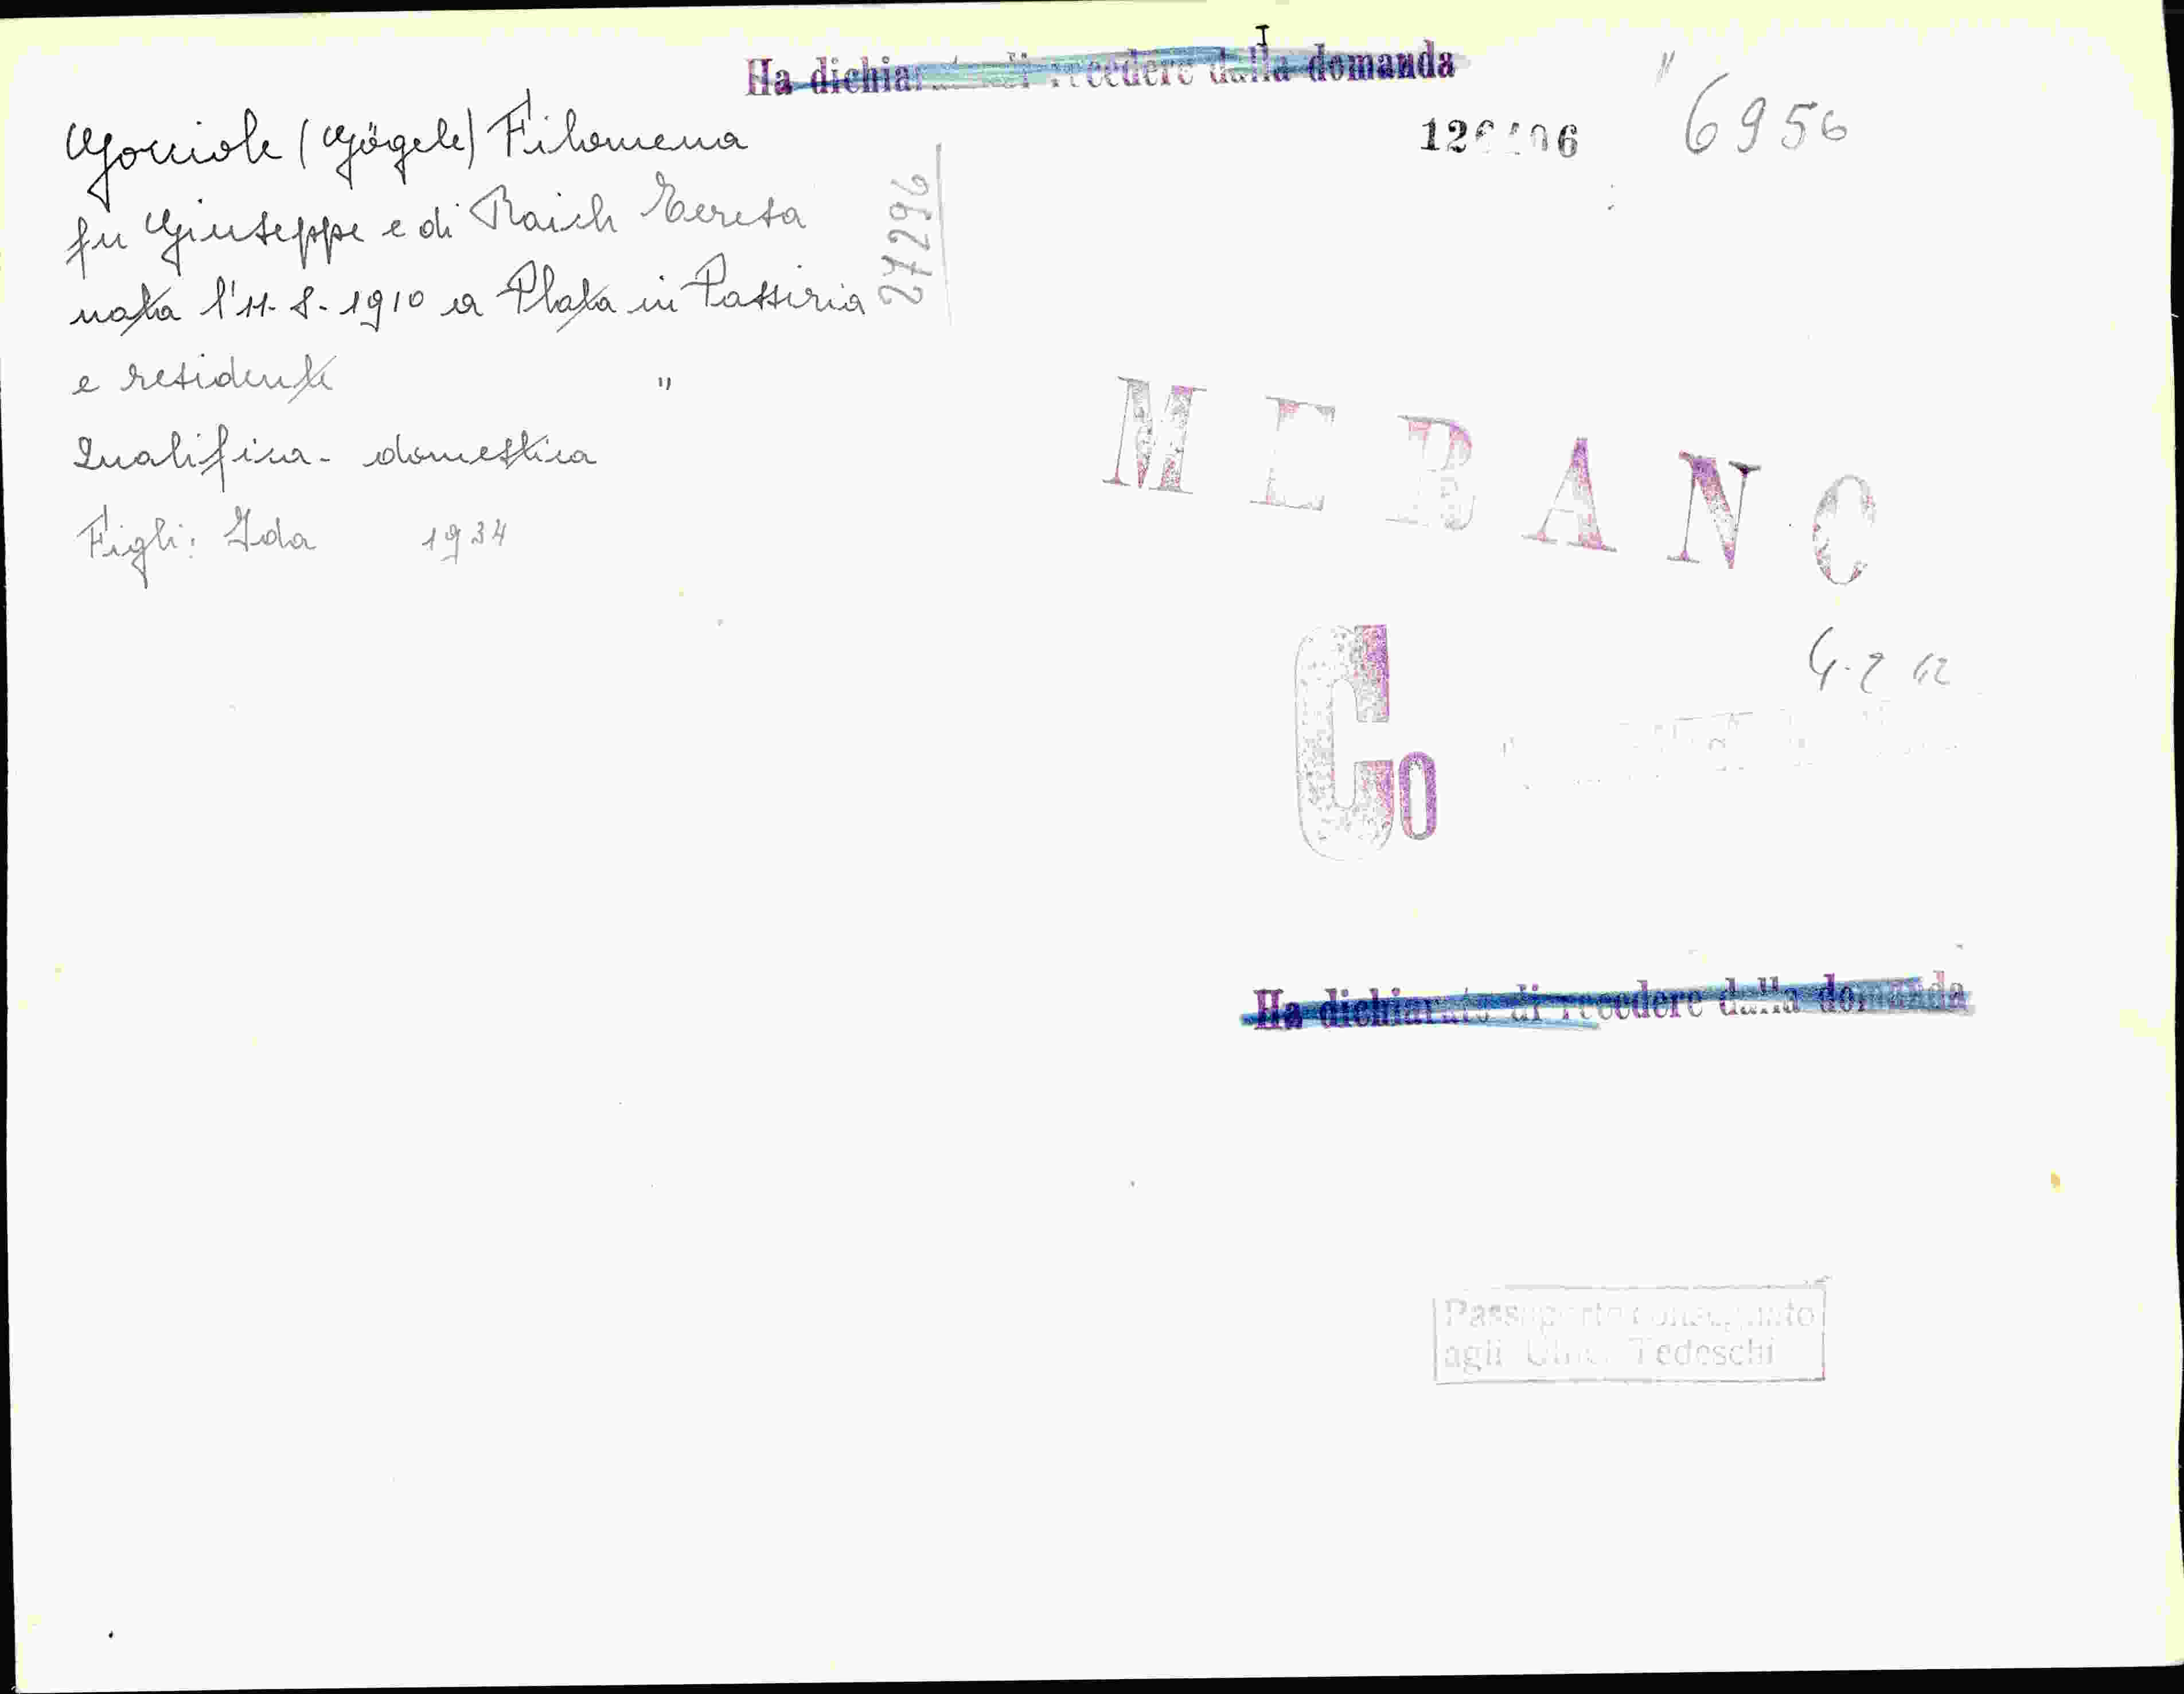 Ha dichiarato di recedere dalla domanda
I
6956
Gocciole (Gögele) Filomena
fu Giuseppe e di Raich Teresa
27296
nata l'11-8-1910 a Plata in Passiria
e residente "
Qualifica - domestica
Figli: Ida 1934
MERANO
Co
Ha dichiarato di recedere dalla domanda
Passaporto consegnato
agli Uffici Tedeschi